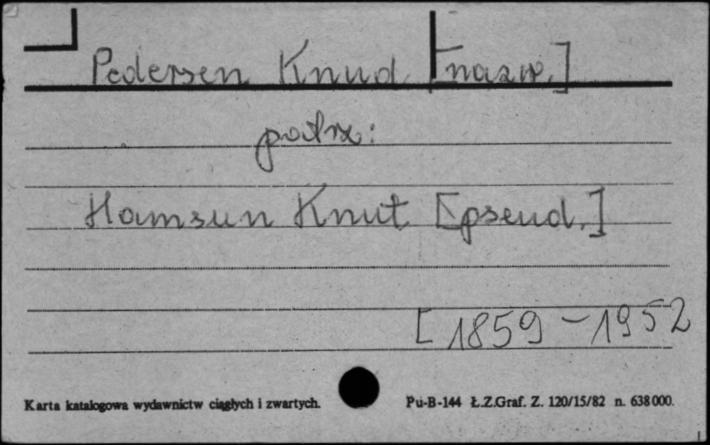 Pedersen Knud [nazw.]
patrz:
Hamsun Knut [pseud.]
[1859-1952
Karta katalogowa wydawnictw ciągłych i zwartych. Pu-B-144 Ł.Z.Graf. Z. 120/15/82 n. 638000.